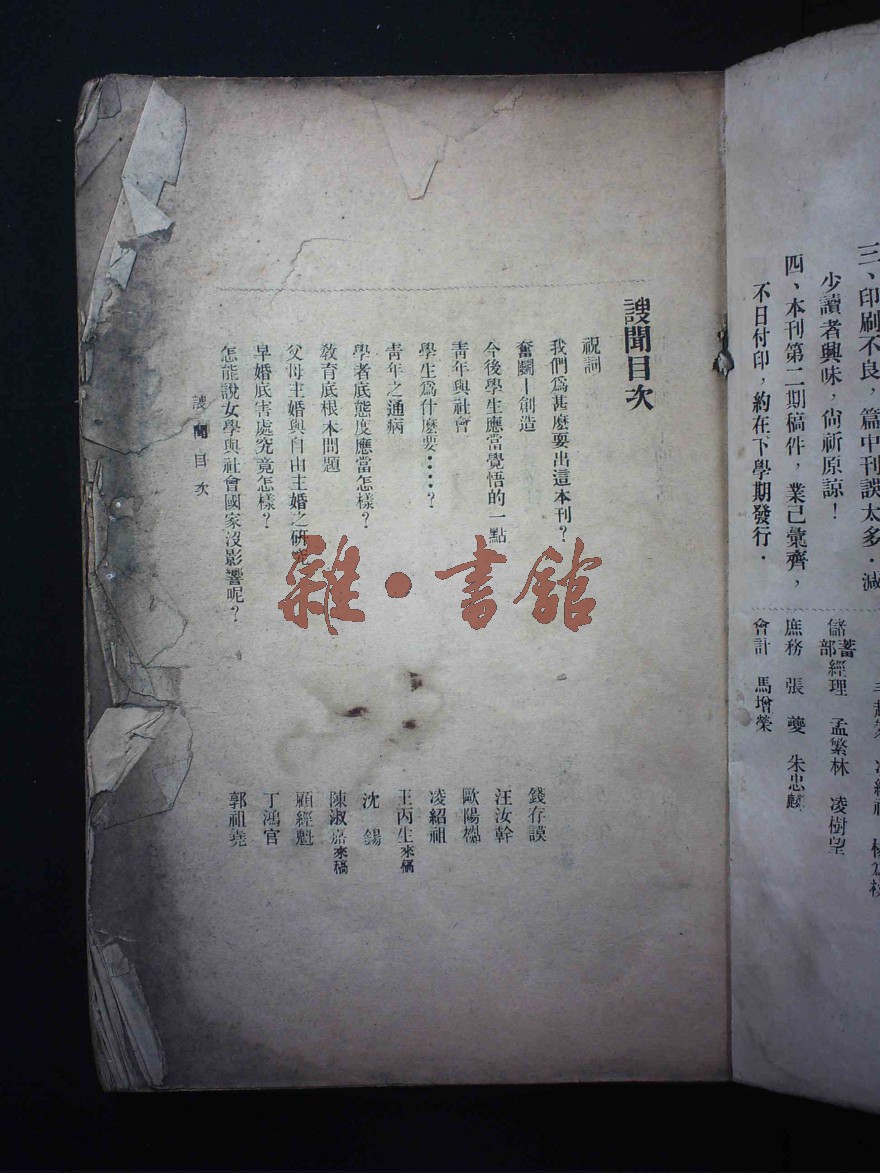 三、印刷不良，篇中刊誤太多．減
少讀者興味，尙祈原諒！
四、本刊第二期稿件，業己彙齊，
不日付印，約在下學期發行．
儲蓄部經理 孟繁林 凌樹望
庶務 張夔 朱忠麟
會計 馬增榮
謏聞目次
祝詞
我們爲甚麼要出這本刊？ 錢存謨
奮鬭—創造 汪汝幹
今後學生應當覺悟的一點 歐陽
靑年與社會 凌紹祖
學生爲什麼要‥‥？ 王丙生來稿
靑年之通病 沈錫
學者底態度應當怎樣？ 陳淑嘉來稿
敎育底根本問題 顧經魁
父母主婚與自由主婚之研究 丁鴻官
早婚底害處究竟怎樣？ 郭祖堯
怎能說女學與社會國家沒影響呢？
謏聞目次
雜·書館